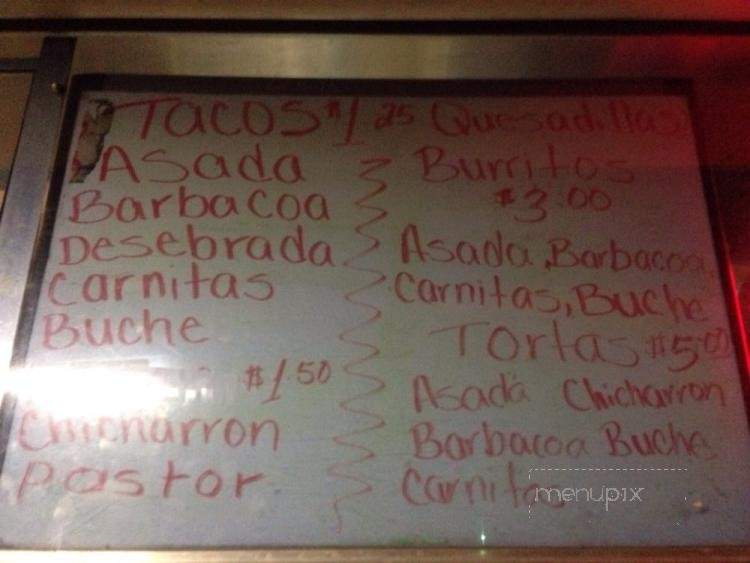 TACOS $1.25
Asada
Barbacoa
Desebrada
Carnitas
Buche
$1.50
Chicharron
Pastor
Quesadillas
Burritos
$3.00
Asada, Barbacoa,
Carnitas, Buche
Tortas $5.00
Asada Chicharron
Barbacoa Buche
Carnitas
menupix